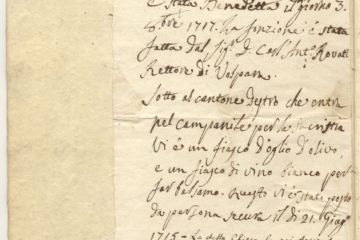 è stata Benedetta il giorno 3.
8bre 1717. la funzione è stata
fatta dal Sig.r D. Carl'Ant.o Rovati
Rettore di Valpara.
Sotto al cantone destro che entra
nel campanile per la sacristia
vi è un fiasco d'oglio d'olivo,
e un fiasco di vino bianco per
far balsamo. questo vi è stato posto
da persona secura il dì 21. Giug.o
1715 - La detta Chiesa